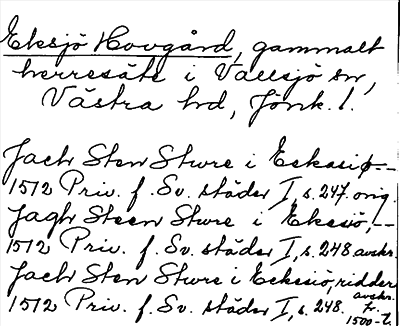 Eksjö Hovgård, gammalt
herresäte i Vallsjö sn,
Västra hd, Jönk. l.
Jach Sten Sture i Eekasiø --
1512 Priv. f. Sv. städer I, s. 247. orig.
Jagh Steen Sture i Ekesiö, --
1512 Priv. f. Sv. städer I, s. 248 avskr.
Jach Sten Sture i Eekesiö, ridder
1512 Priv. f. Sv. städer I, s. 248. avskr. fr. 1500-t.